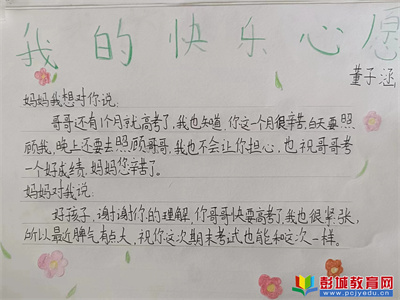 我的快乐心愿
董子涵
妈妈我想对你说:
哥哥还有1个月就高考了,我也知道,你这一个月很辛苦,白天要照
顾我,晚上还要去照顾哥哥,我也不会让你担心,也祝哥哥考
一个好成绩,妈妈您辛苦了。
妈妈对我说:
好孩子,谢谢你的理解,你哥哥快要高考了,我也很紧张,
所以最近脾气有点大,祝你这次期末考试也能和这次一样。
彭城教育网
www.pcjyedu.cn